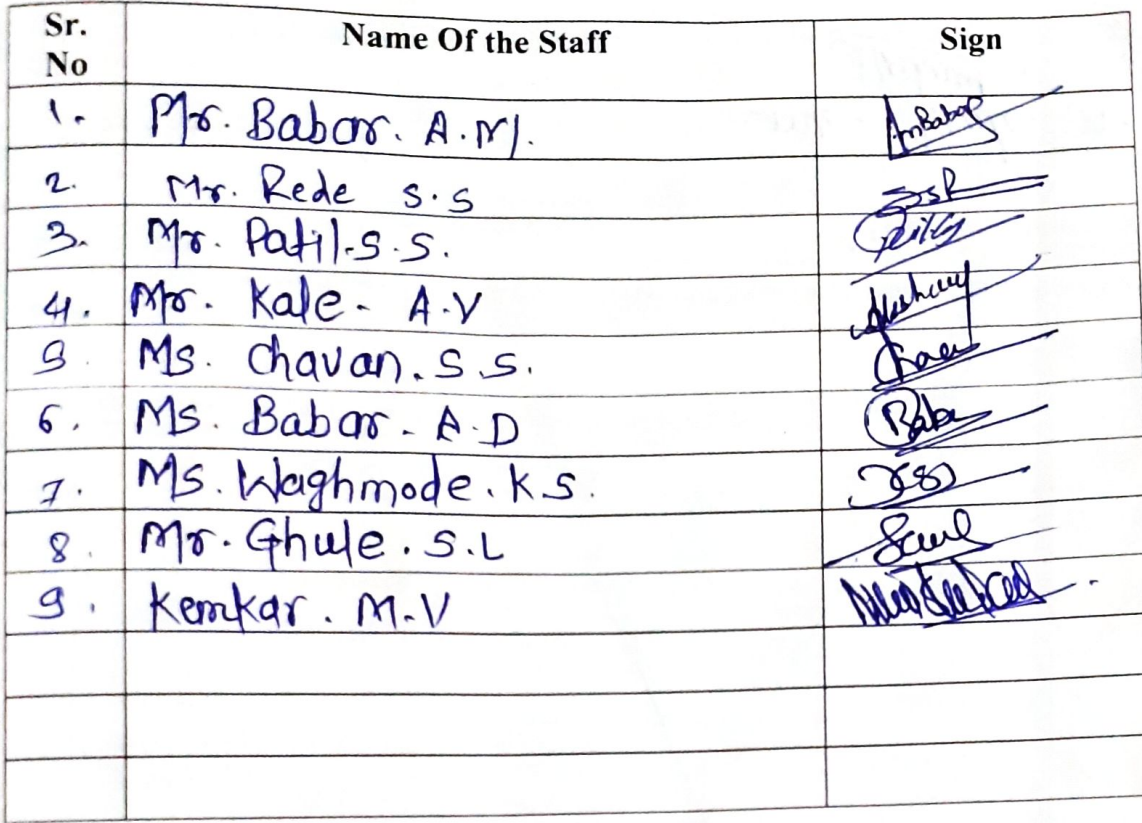 Sr. No Name Of the Staff Sign
1. Mr. Babar. A.M. AmBabar
2. Mr. Rede S.S SSR
3. Mr. Patil.S.S.
4. Mr. Kale - A.V
5. Ms. Chavan. S.S.
6. Ms. Babar - A.D
7. Ms. Waghmode. K.S.
8. Mr. Ghule. S.L
9. Kemkar. M.V